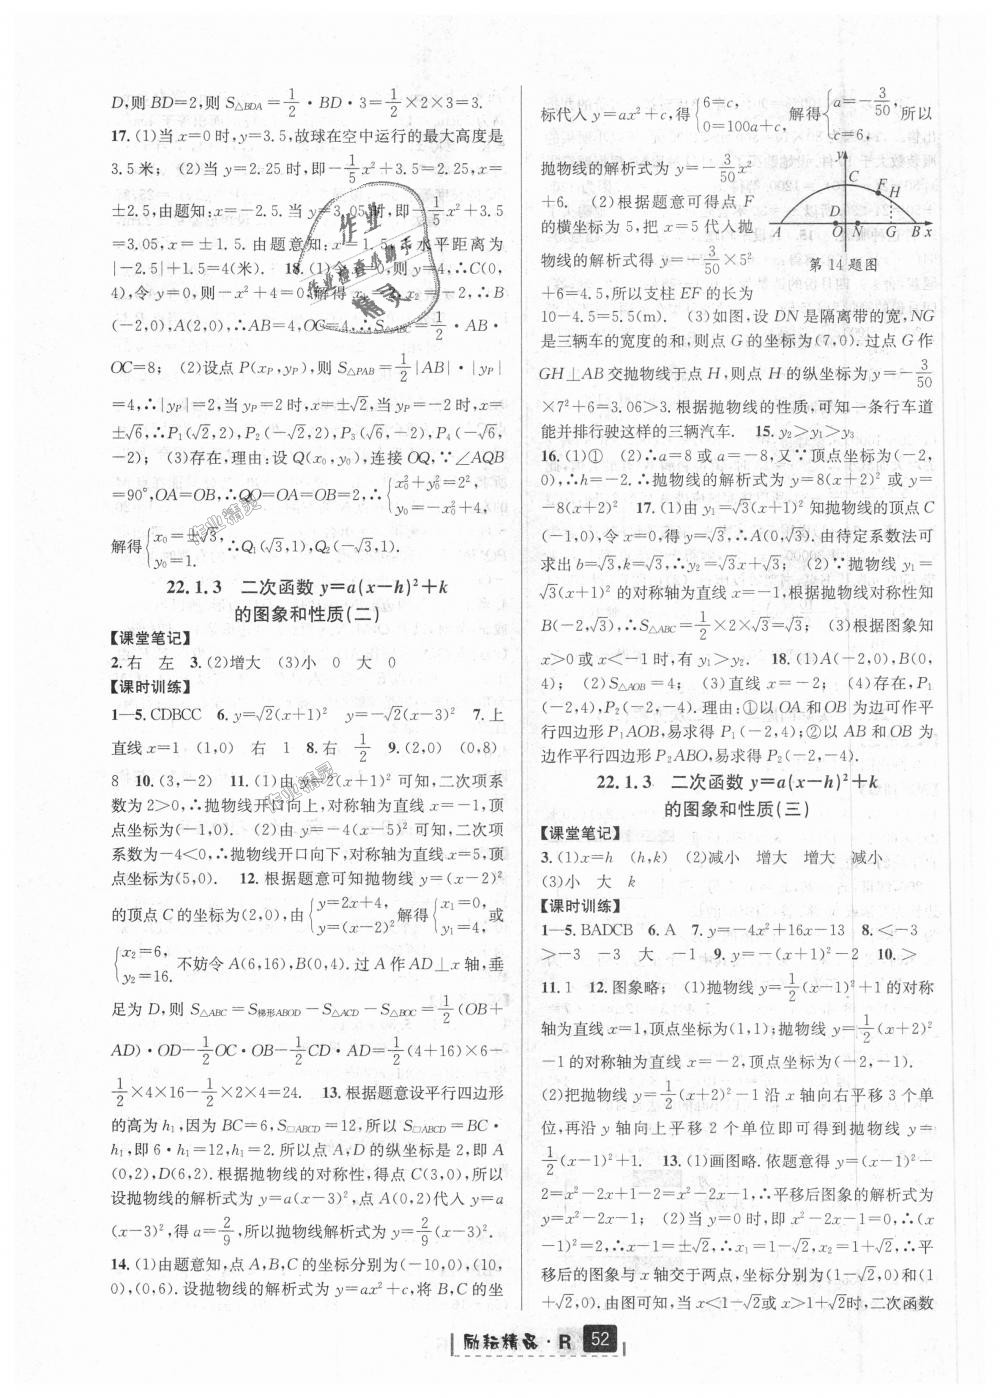 D,则 BD=2,则 S△BDA=1/2·BD·3=1/2×2×3=3.
17. (1)当 x=0 时,y=3.5,故球在空中运行的最大高度是
3.5 米; (2)当 y=2.25 时,即-1/5x²+3.5=2.25,x=
±2.5,由题知:x=-2.5.当 y=3.05 时,即-1/5x²+3.5
=3.05,x=±1.5.由题意知:x=1.5,水平距离为
|-2.5|+1.5=4(米). 18. (1)令 x=0,y=4,∴C(0,
4),令 y=0,则-x²+4=0,解得 x₁=2,x₂=-2,∴B
(-2,0),A(2,0),∴AB=4,OC=4,∴S△ABC=1/2·AB·
OC=8; (2)设点 P(xP,yP),则 S△PAB=1/2|AB|·|yP|
=4,∴|yP|=2,当 yP=2 时,x=±√2,当 yP=-2 时,x=
±√6,∴P₁(√2,2),P₂(-√2,2),P₃(√6,-2),P₄(-√6,
-2); (3)存在,理由:设 Q(x₀,y₀),连接 OQ,∵∠AQB
=90°,OA=OB,∴QO=OA=OB=2,∴{x₀²+y₀²=2², y₀=-x₀²+4,
解得{x₀=±√3, y₀=1. ∴Q₁(√3,1),Q₂(-√3,1).
22.1.3 二次函数 y=a(x-h)²+k
的图象和性质(二)
【课堂笔记】
2. 右 左 3. (2)增大 (3)小 0 大 0
【课时训练】
1—5. CDBCC 6. y=√2(x+1)² y=-√2(x-3)² 7. 上
直线 x=1 (1,0) 右 1 8. 右 1/2 9. (2,0) (0,8)
8 10. (3,-2) 11. (1)由 y=2(x+1)² 可知,二次项系
数为 2>0,∴抛物线开口向上,对称轴为直线 x=-1,顶
点坐标为(-1,0). (2)由 y=-4(x-5)² 可知,二次项
系数为-4<0,∴抛物线开口向下,对称轴为直线 x=5,顶
点坐标为(5,0). 12. 根据题意可知抛物线 y=(x-2)²
的顶点 C 的坐标为(2,0),由{y=2x+4, y=(x-2)² 解得{x₁=0, y₁=4,或
{x₂=6, y₂=16. 不妨令 A(6,16),B(0,4).过 A 作 AD⊥x 轴,垂
足为 D,则 S△ABC=S梯形ABOD-S△ACD-S△BOC=1/2(OB+
AD)·OD-1/2OC·OB-1/2CD·AD=1/2(4+16)×6-
1/2×4×16-1/2×2×4=24. 13. 根据题意设平行四边形
的高为 h₁,因为 BC=6,S□ABCD=12,所以 S□ABCD=BC·
h₁,即 6·h₁=12,h₁=2.所以点 A 的纵坐标是 2,即 A
(0,2),D(6,2).根据抛物线的对称性,得点 C(3,0),所以
设抛物线的解析式为 y=a(x-3)²,点 A(0,2)代入 y=a
(x-3)²,得 a=2/9,所以抛物线解析式为 y=2/9(x-3)².
14. (1)由题意知,点 A,B,C 的坐标分别为(-10,0),(10,
0),(0,6).设抛物线的解析式为 y=ax²+c,将 B,C 的坐
标代入 y=ax²+c,得{6=c, 0=100a+c, 解得{a=-3/50, c=6, 所以
抛物线的解析式为 y=-3/50x²
+6. (2)根据题意可得点 F
的横坐标为 5,把 x=5 代入抛
物线的解析式得 y=-3/50×5²
+6=4.5,所以支柱 EF 的长为
y C F H A D O N G B x
第 14 题图
10-4.5=5.5(m). (3)如图,设 DN 是隔离带的宽,NG
是三辆车的宽度的和,则点 G 的坐标为(7,0).过点 G 作
GH⊥AB 交抛物线于点 H,则点 H 的纵坐标为 y=-3/50
×7²+6=3.06>3.根据抛物线的性质,可知一条行车道
能并排行驶这样的三辆汽车. 15. y₂>y₁>y₃
16. (1)① (2)∴a=8 或 a=-8,又∵顶点坐标为(-2,
0),∴h=-2.∴抛物线的解析式为 y=8(x+2)² 或 y=
-8(x+2)² 17. (1)由 y₁=√3(x+1)² 知抛物线的顶点 C
(-1,0),令 x=0,得 y=√3,∴A(0,√3).由待定系数法可
求出 b=√3,k=√3,∴y₂=√3x+√3; (2)∵抛物线 y₁=
√3(x+1)² 的对称轴为直线 x=-1,根据抛物线对称性知
B(-2,√3),∴S△ABC=1/2×2×√3=√3; (3)根据图象知
x>0 或 x<-1 时,有 y₁>y₂. 18. (1)A(-2,0),B(0,
4); (2)S△AOB=4; (3)直线 x=-2; (4)存在,P₁
(-2,4),P₂(-2,-4).理由:①以 OA 和 OB 为边可作平
行四边形 P₁AOB,易求得 P₁(-2,4);②以 AB 和 OB 为
边作平行四边形 P₂ABO,易求得 P₂(-2,-4).
22.1.3 二次函数 y=a(x-h)²+k
的图象和性质(三)
【课堂笔记】
3. (1)x=h (h,k) (2)减小 增大 增大 减小
(3)小 大 k
【课时训练】
1—5. BADCB 6. A 7. y=-4x²+16x-13 8. <-3
>-3 -3 大 -1 9. y=-(x+1)²-2 10. >
11. 1 12. 图象略; (1)抛物线 y=1/2(x-1)²+1 的对称
轴为直线 x=1,顶点坐标为(1,1);抛物线 y=1/2(x+2)²
-1 的对称轴为直线 x=-2,顶点坐标为(-2,-1).
(2)把抛物线 y=1/2(x+2)²-1 沿 x 轴向右平移 3 个单
位,再沿 y 轴向上平移 2 个单位即可得到抛物线 y=
1/2(x-1)²+1. 13. (1)画图略.依题意得 y=(x-1)²-
2=x²-2x+1-2=x²-2x-1,∴平移后图象的解析式为
y=x²-2x-1; (2)当 y=0 时,即 x²-2x-1=0,∴(x
-1)²=2,∴x-1=±√2,∴x₁=1-√2,x₂=1+√2,∴平
移后的图象与 x 轴交于两点,坐标分别为(1-√2,0)和(1
+√2,0).由图可知,当 x<1-√2或 x>1+√2时,二次函数
励耘精品·R 52
作业
作业检查小助手
精灵
作业精灵
作业精灵